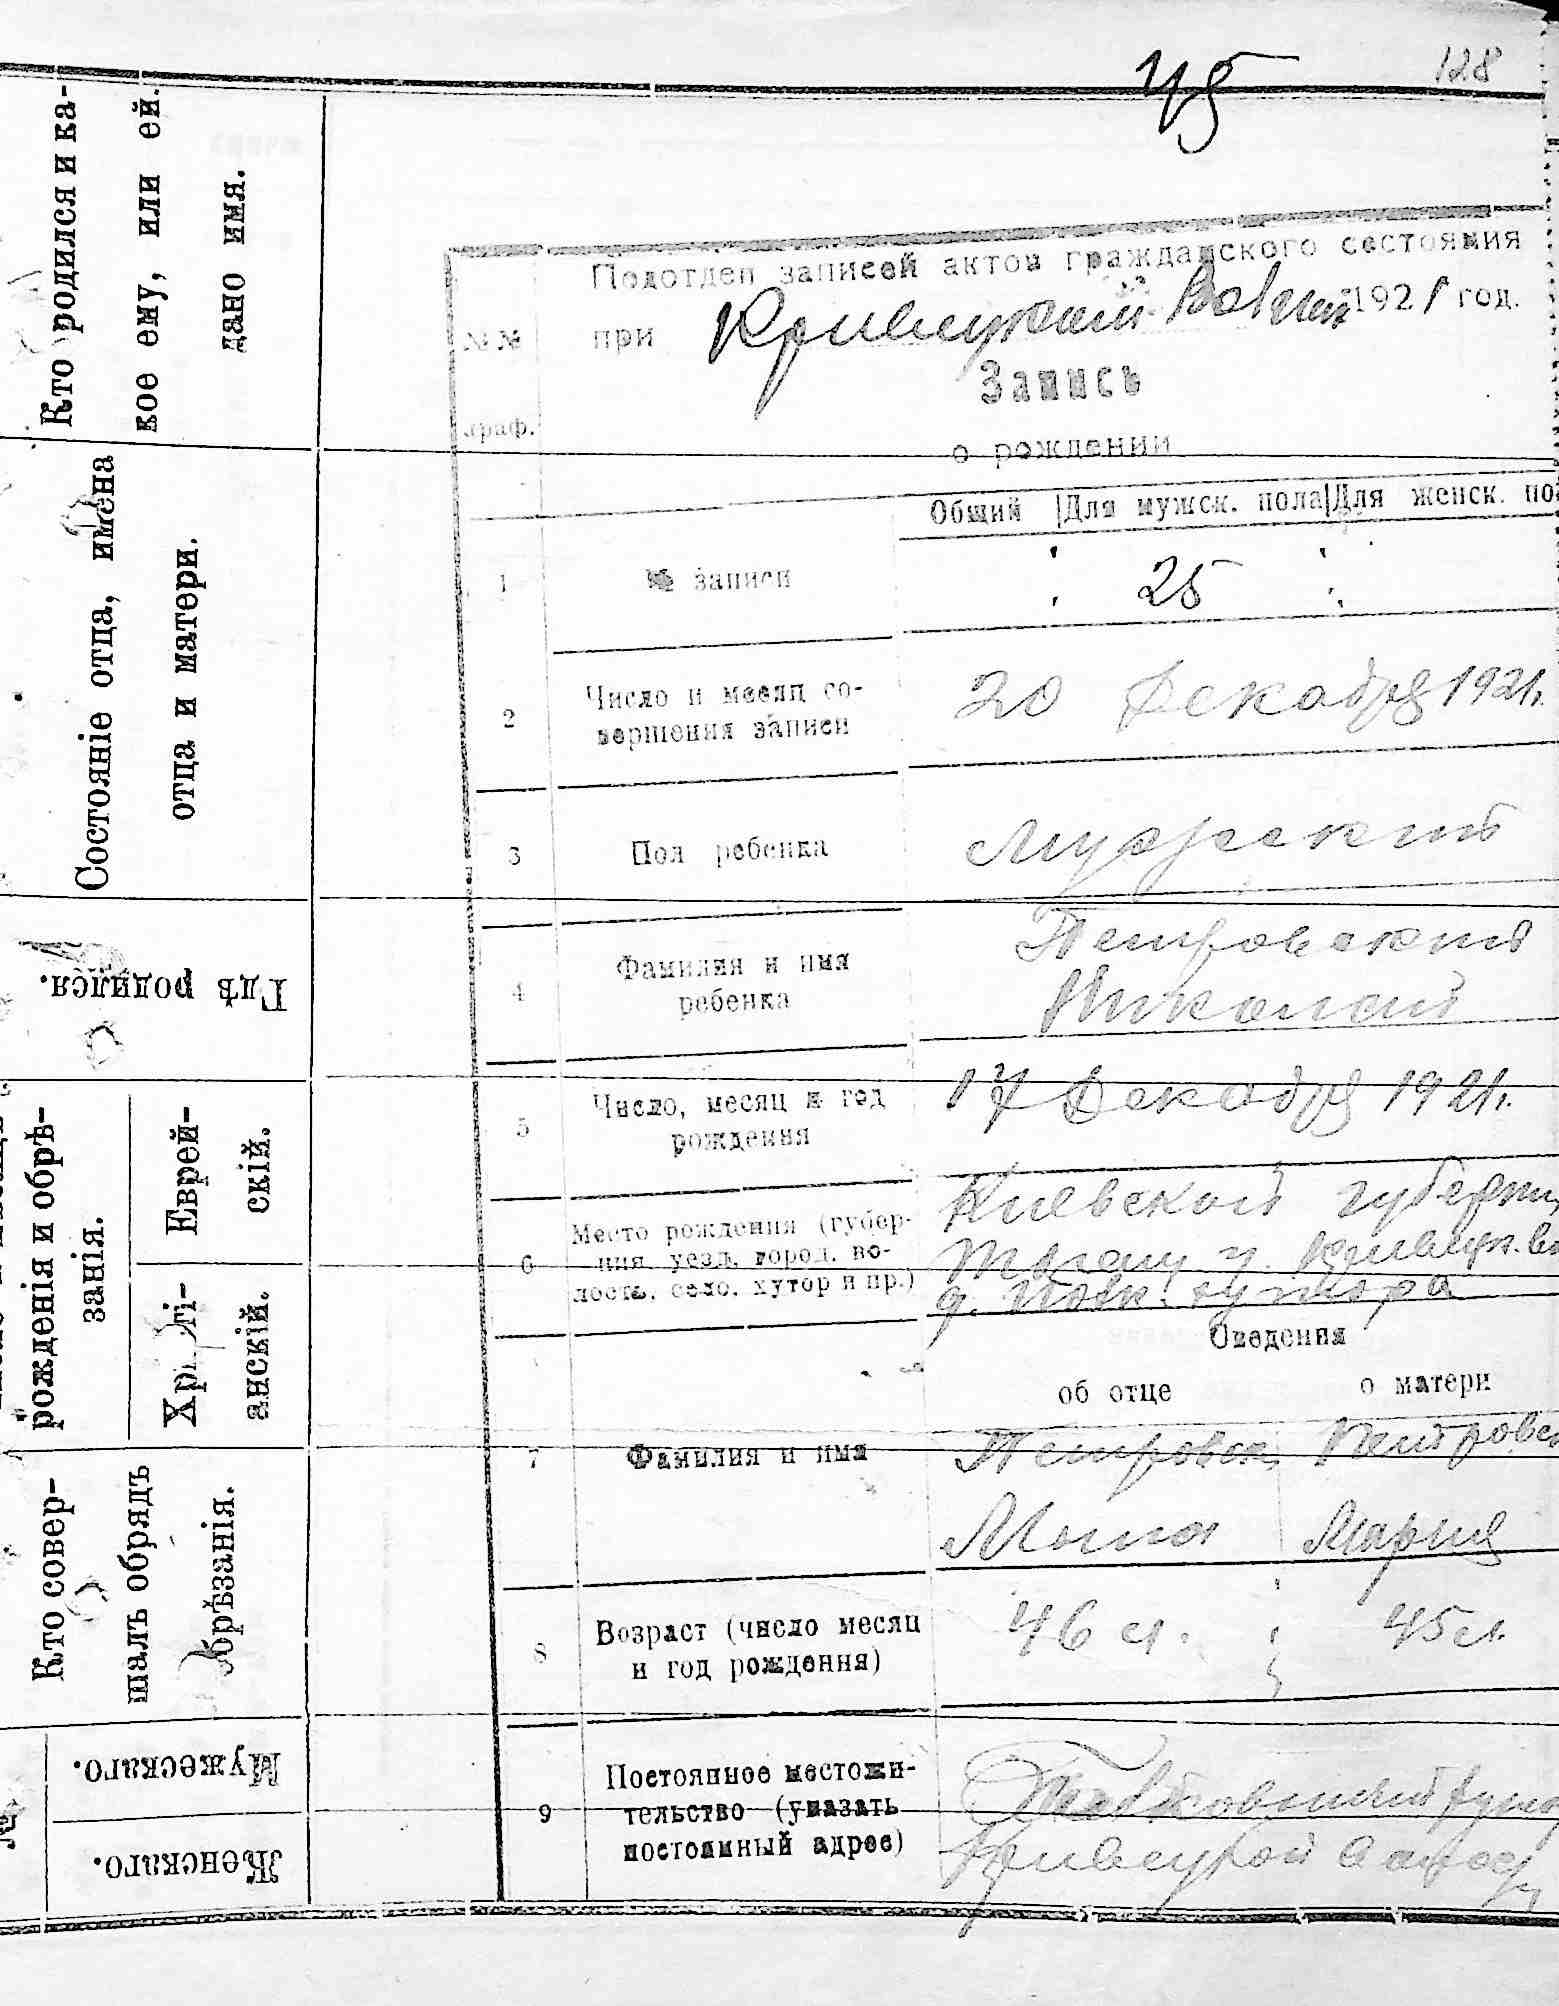 128
45
Кто родился и ка-
кое ему, или ей.
дано имя.
Состояніе отца, имена
отца и матери.
Гдѣ родился.
рожденія и обрѣ-
занія.
Еврей-
скій.
Христі-
анскій.
Кто совер-
шалъ обрядъ
обрѣзанія.
Мужескаго.
Женскаго.
Подотдел записей актов гражданского состояния
при 1921 год.
№№
граф.
Запись
о рождении
Общий Для мужск. пола Для женск. по
1 № записи 25
2 Число и месяц со-
вершения записи
20 Декабря 1921г.
3 Пол ребенка Мужский
4 Фамилия и имя
ребенка
Петровский
Николай
5 Число, месяц и год
рождения
17 Декабря 1921г.
6 Место рождения (губер-
ния, уезд, город, во-
лость, село, хутор и пр.)
Киевской губерни
хутора
Сведения
об отце о матери
7 Фамилия и имя
Петровск. Петровс
Мина Мария
8 Возраст (число месяц
и год рождения)
46 л. 45 л.
9 Постоянное местожи-
тельство (указать
постоянный адрес)